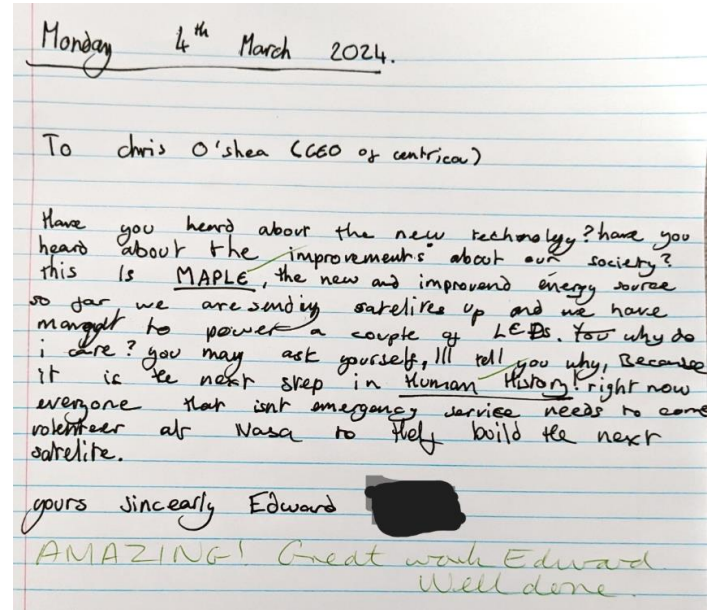 Monday 4th March 2024.
To chris O'shea (CEO of centrica)
Have you heard about the new technology? have you
heard about the improvements about our society?
this Is MAPLE, the new and improvend energy source
so far we are sending satelires up and we have
to power a couple of LEDs. why do
i care? you may ask yourself, Ill tell you why, Because
it is the next step in Human History! right now
everyone that isnt emergency service needs to come
volenteer at Nasa to build the next
satelite.
yours sincearly Edward
AMAZING! Great work Edward
Well done.